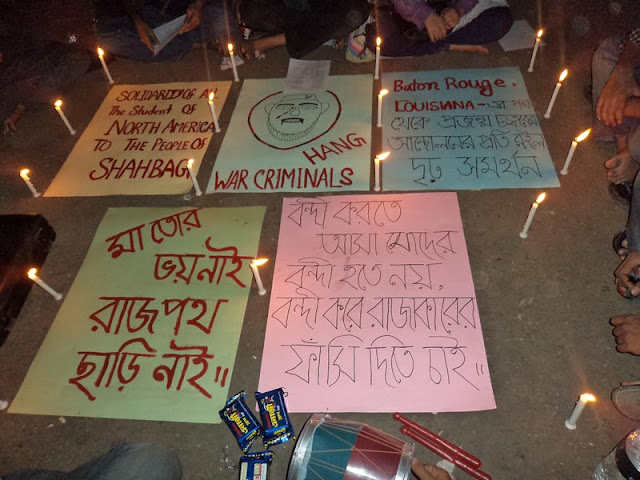 SOLIDARITY OF ALL
The Student of
NORTH AMERICA
TO THE PEOPLE OF
SHAHBAG
HANG
WAR CRIMINALS
Baton Rouge,
LOUISIANA-এর পক্ষ
থেকে প্রজন্ম চত্বরের
আন্দোলনের প্রতি রইল
দৃঢ় সমর্থন
মা তোর
ভয় নাই
রাজপথ
ছাড়ি নাই॥
বন্দী করতে
আসা মোদের
বন্দী হতে নয়,
বন্দী করে রাজাকারের
ফাঁসি দিতে চাই॥